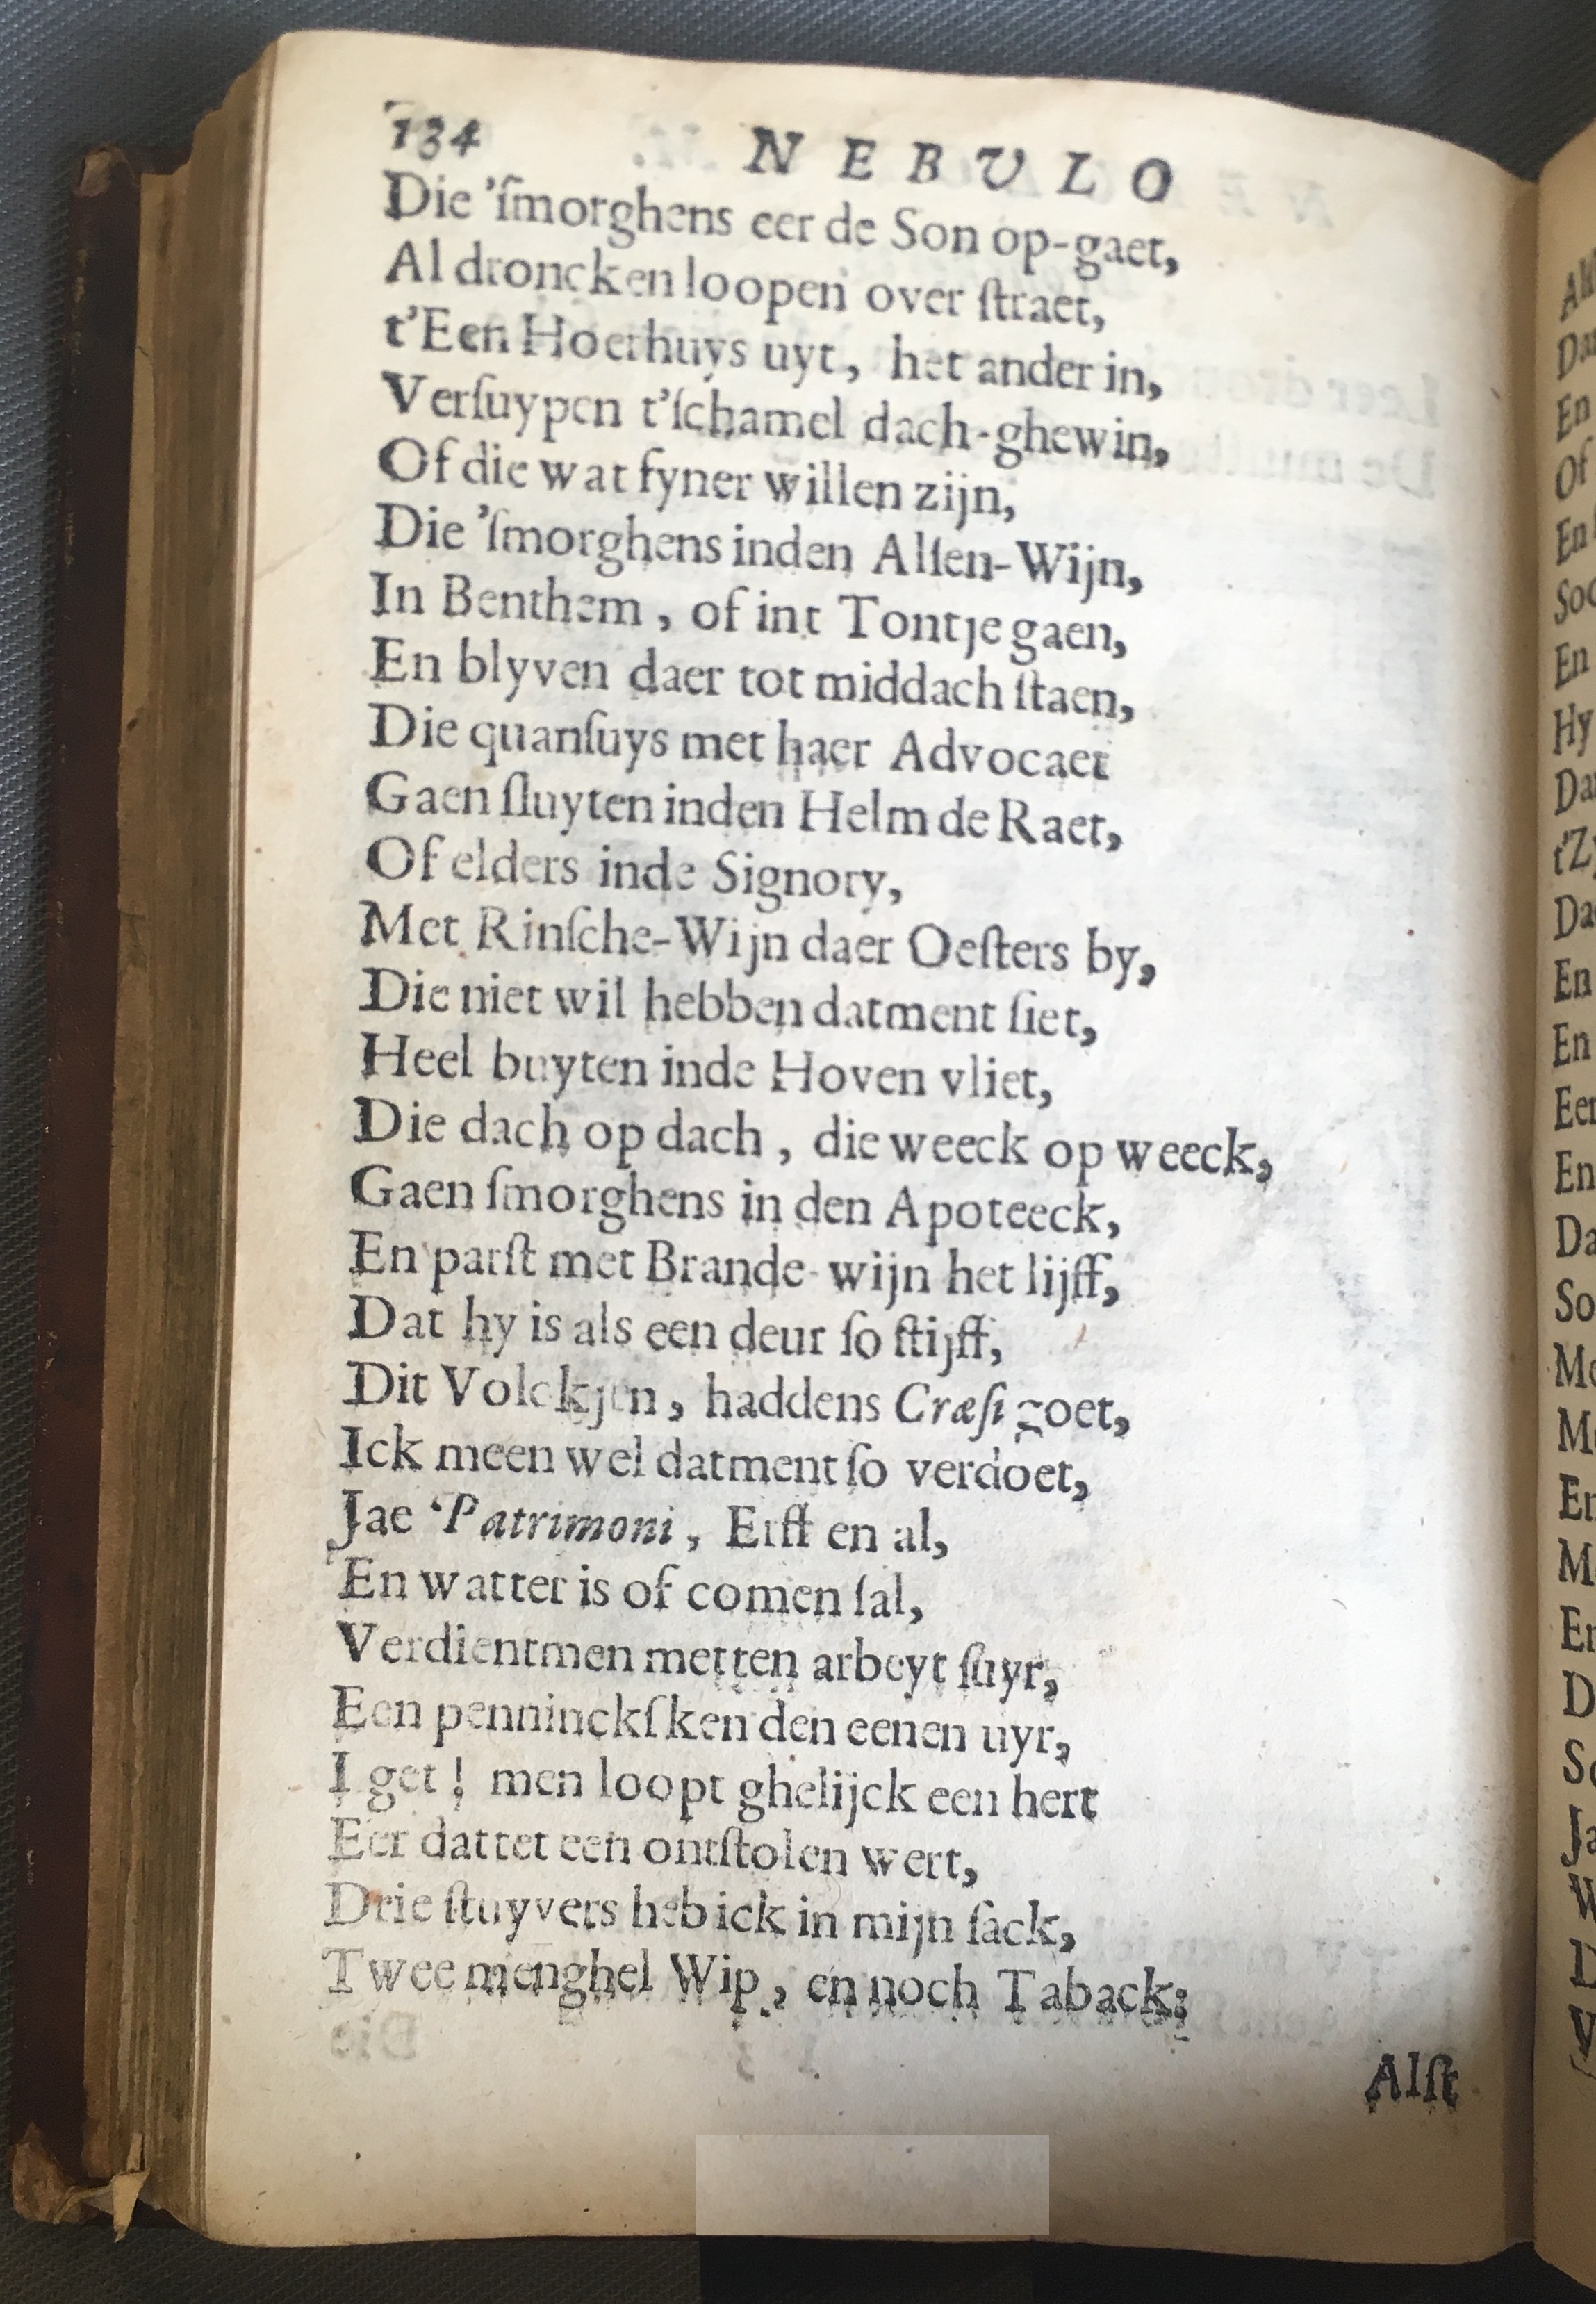 134 NEBVLO
Die 'ſmorghens eer de Son op-gaet,
Al droncken loopen over ſtraet,
t'Een Hoerhuys uyt, het ander in,
Verſuypen t'ſchamel dach-ghewin,
Of die wat fyner willen zijn,
Die 'ſmorghens inden Alſen-Wijn,
In Benthem, of int Tontje gaen,
En blyven daer tot middach ſtaen,
Die quanſuys met haer Advocaet
Gaen ſluyten inden Helm de Raet,
Of elders inde Signory,
Met Rinſche-Wijn daer Oeſters by,
Die niet wil hebben datment ſiet,
Heel buyten inde Hoven vliet,
Die dach op dach, die weeck op weeck,
Gaen ſmorghens in den Apoteeck,
En parſt met Brande-wijn het lijff,
Dat hy is als een deur ſo ſtijff,
Dit Volckjen, haddens Cræſi goet,
Ick meen wel datment ſo verdoet,
Jae Patrimoni, Erff en al,
En watter is of comen ſal,
Verdientmen metten arbeyt ſuyr,
Een penninckſken den eenen uyr,
I get! men loopt ghelijck een hert
Eer dattet een ontſtolen wert,
Drie ſtuyvers heb ick in mijn ſack,
Twee menghel Wip, en noch Taback:
Alſt